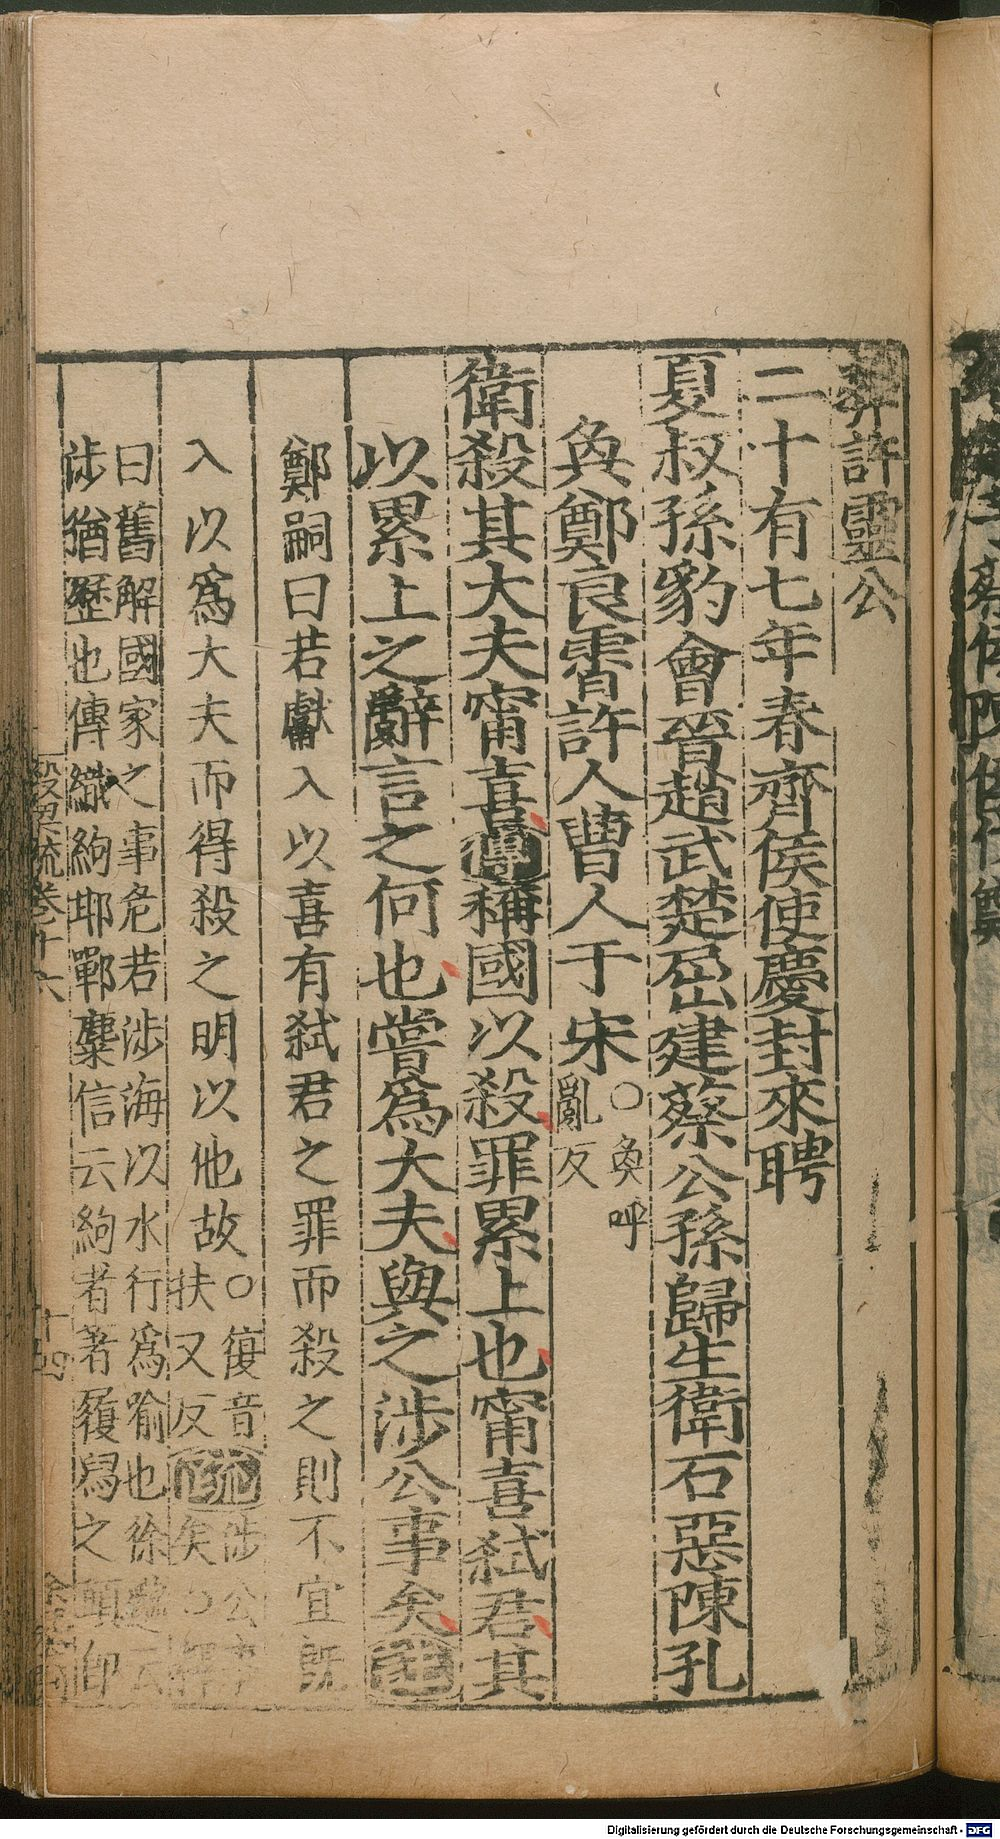 葬許靈公
二十有七年春齊侯使慶封來聘
夏叔孫豹會晉趙武楚屈建蔡公孫歸生衛石惡陳孔
奐鄭良霄許人曹人于宋○奐呼
亂反
衛殺其大夫甯喜傳稱國以殺罪累上也甯喜弒君其
以累上之辭言之何也嘗爲大夫與之涉公事矣注
鄭嗣曰若獻入以喜有弒君之罪而殺之則不宜既
入以爲大夫而得殺之明以他故○復音
扶又反疏涉公事
矣○釋
曰舊解國家之事危若涉海以水行爲喻也徐邈云
涉猶歷也傳織絇邯鄲麋信云絇者著履舄之頭即
穀梁疏卷十六
十四
Digitalisierung gefördert durch die Deutsche Forschungsgemeinschaft - DFG